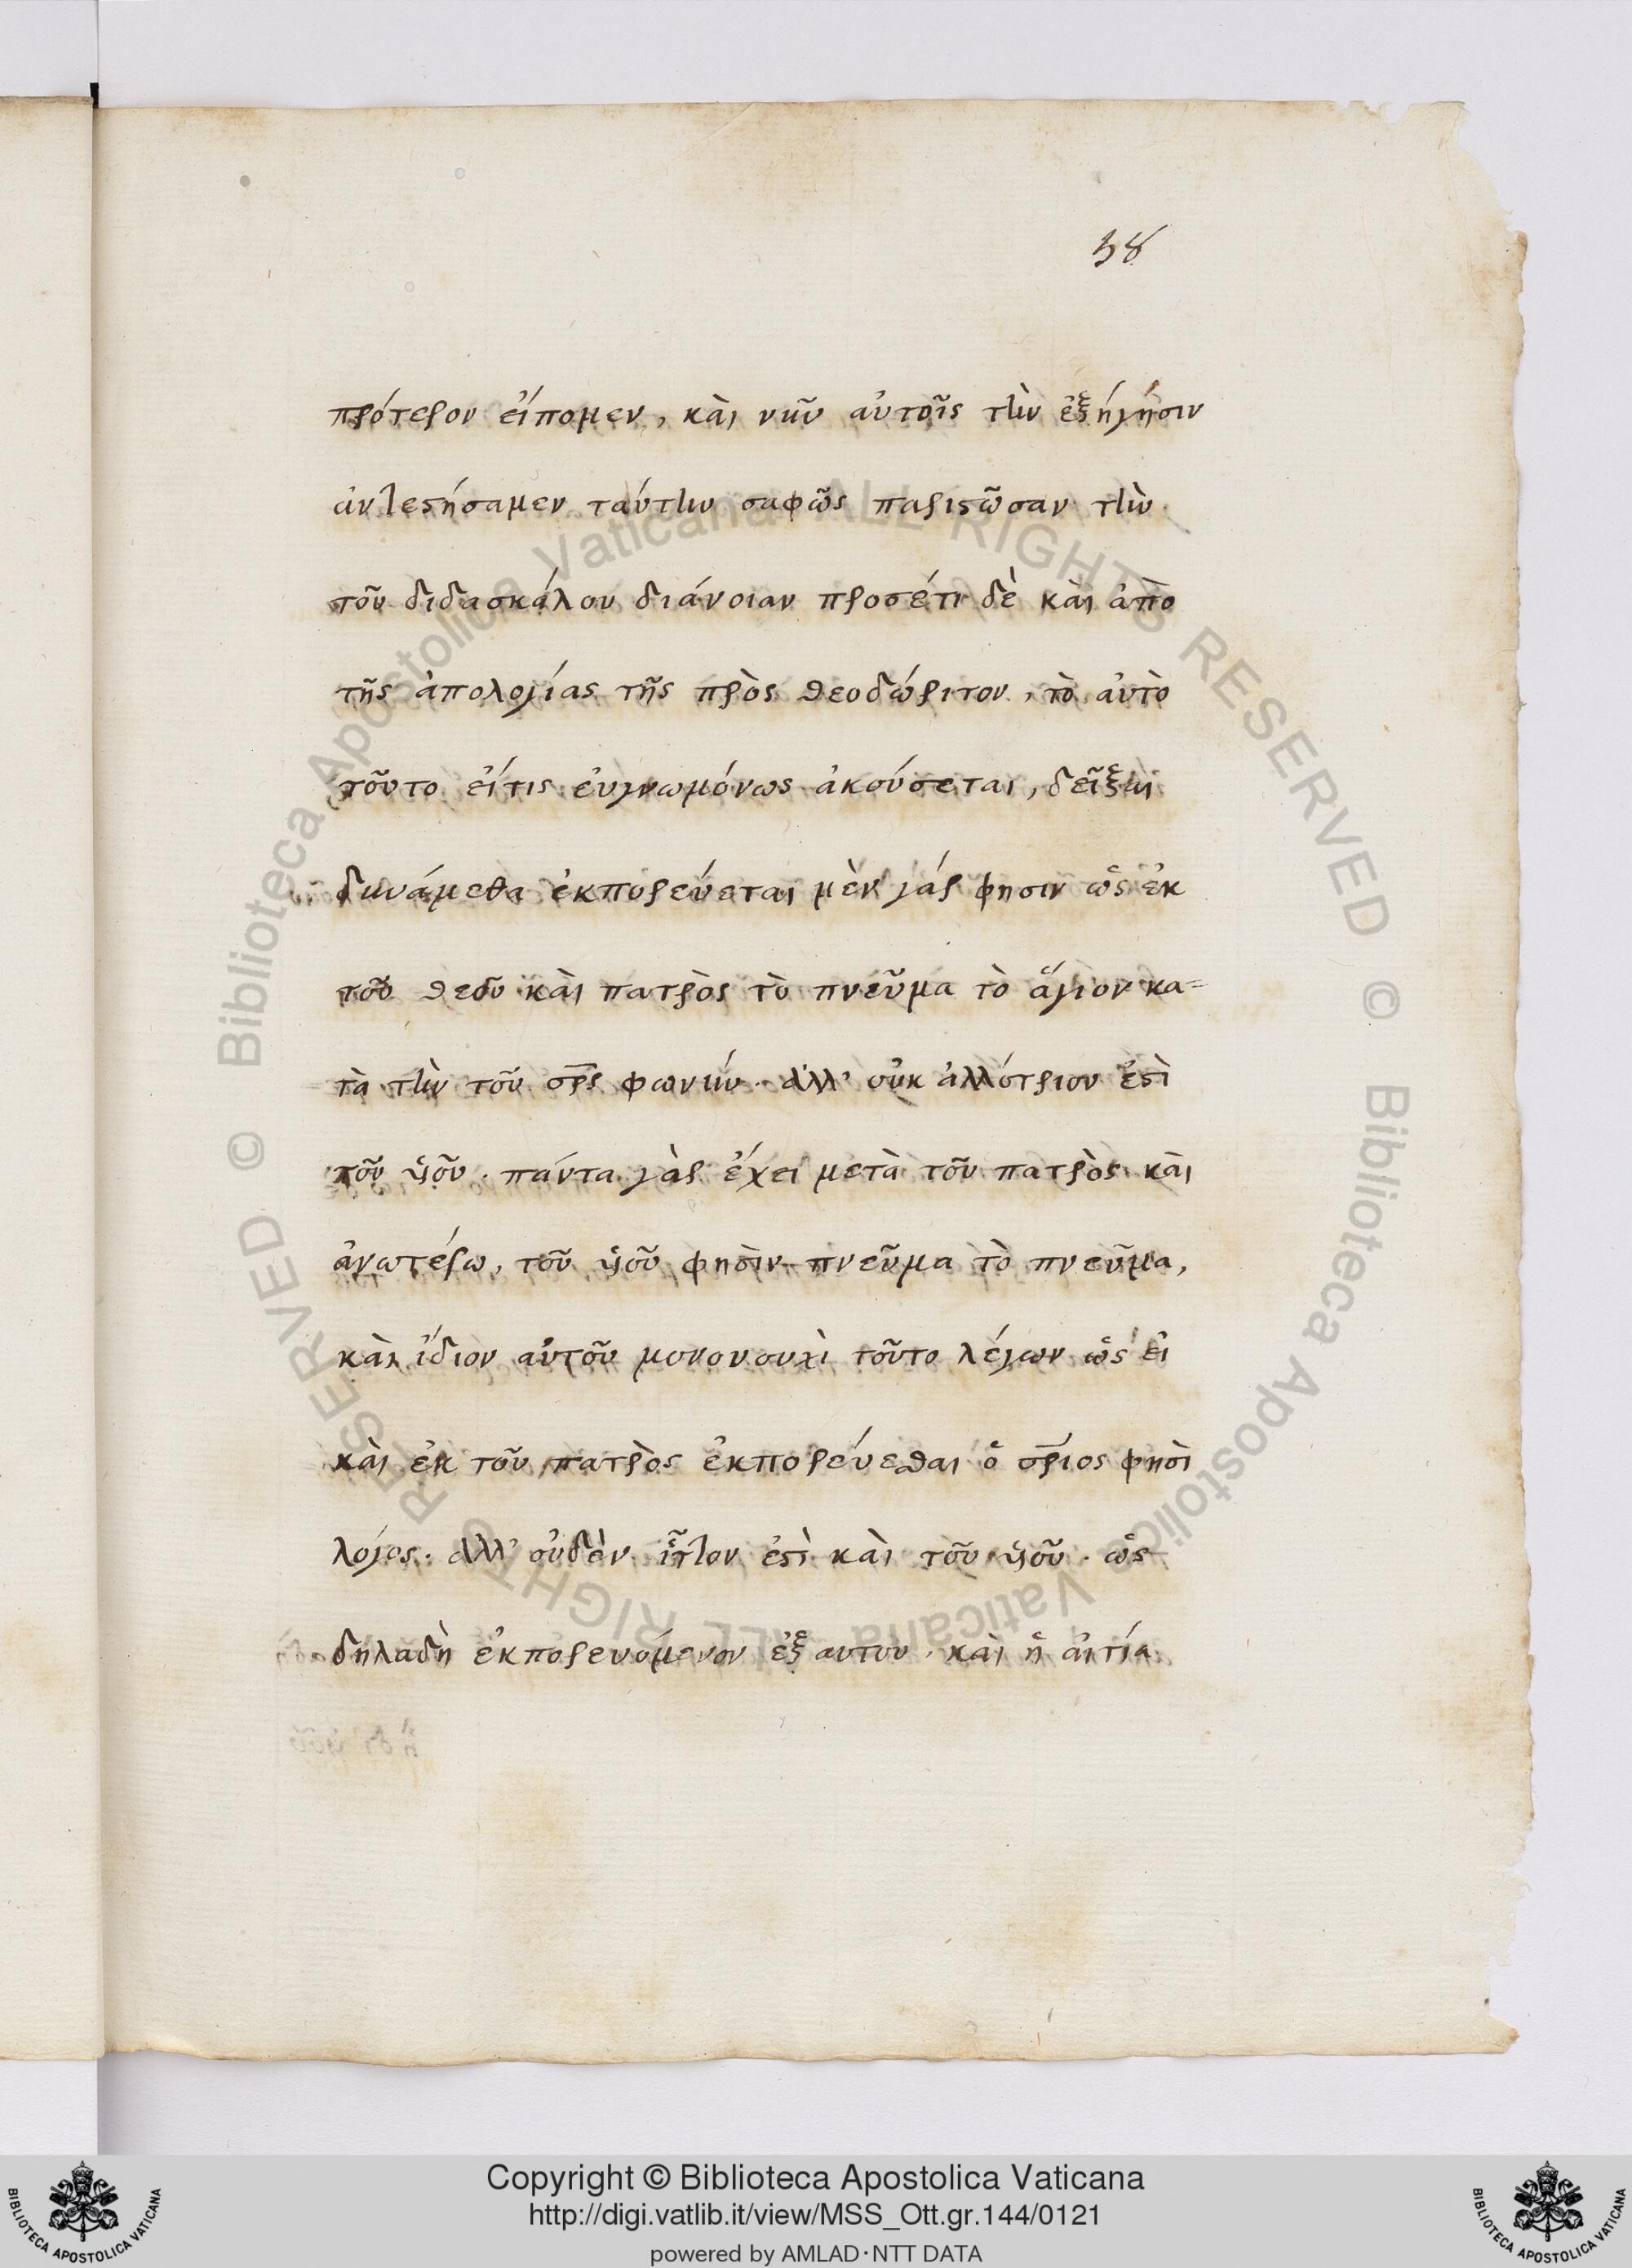 58
πρότερον είπομεν, καὶ νῦν αὐτοῖς τὴν ἐξήγησιν
ἀντεστήσαμεν ταύτην σαφῶς παριστῶσαν τὴν
τοῦ διδασκάλου διάνοιαν προσέτι δὲ καὶ ἀπὸ
τῆς ἀπολογίας τῆς πρὸς θεοδώριτον, τὸ αὐτὸ
τοῦτο εἴτις εὐγνωμόνως ἀκούσεται, δεῖξαι
δυνάμεθα ἐκπορεύεται μὲν γάρ φησιν ὡς ἐκ
τοῦ θεοῦ καὶ πατρὸς τὸ πνεῦμα τὸ ἅγιον κα=
τὰ τὴν τοῦ σρ̅ς φωνήν. ἀλλ' οὐκ ἀλλότριον ἐστὶ
τοῦ ὑιοῦ. πάντα γὰρ ἔχει μετὰ τοῦ πατρὸς καὶ
ἀνωτέρω, τοῦ ὑιοῦ φησὶν πνεῦμα τὸ πνεῦμα,
καὶ ἴδιον αὐτοῦ μονονουχὶ τοῦτο λέγων ὡς εἰ
καὶ ἐκ τοῦ πατρὸς ἐκπορεύεσθαι ὁ σρ̅ιος φησὶ
λόγος. ἀλλ' οὐδὲν ἧττον ἐστὶ καὶ τοῦ ὑιοῦ. ὡς
δηλαδὴ ἐκπορευόμενον ἐξ αυτου. καὶ ἡ αἰτία
Copyright © Biblioteca Apostolica Vaticana
http://digi.vatlib.it/view/MSS_Ott.gr.144/0121
powered by AMLAD·NTT DATA
BIBLIOTECA APOSTOLICA VATICANA
BIBLIOTECA APOSTOLICA VATICANA
© Biblioteca Apostolica Vaticana ALL RIGHTS RESERVED
© Biblioteca Apostolica Vaticana ALL RIGHTS RESERVED